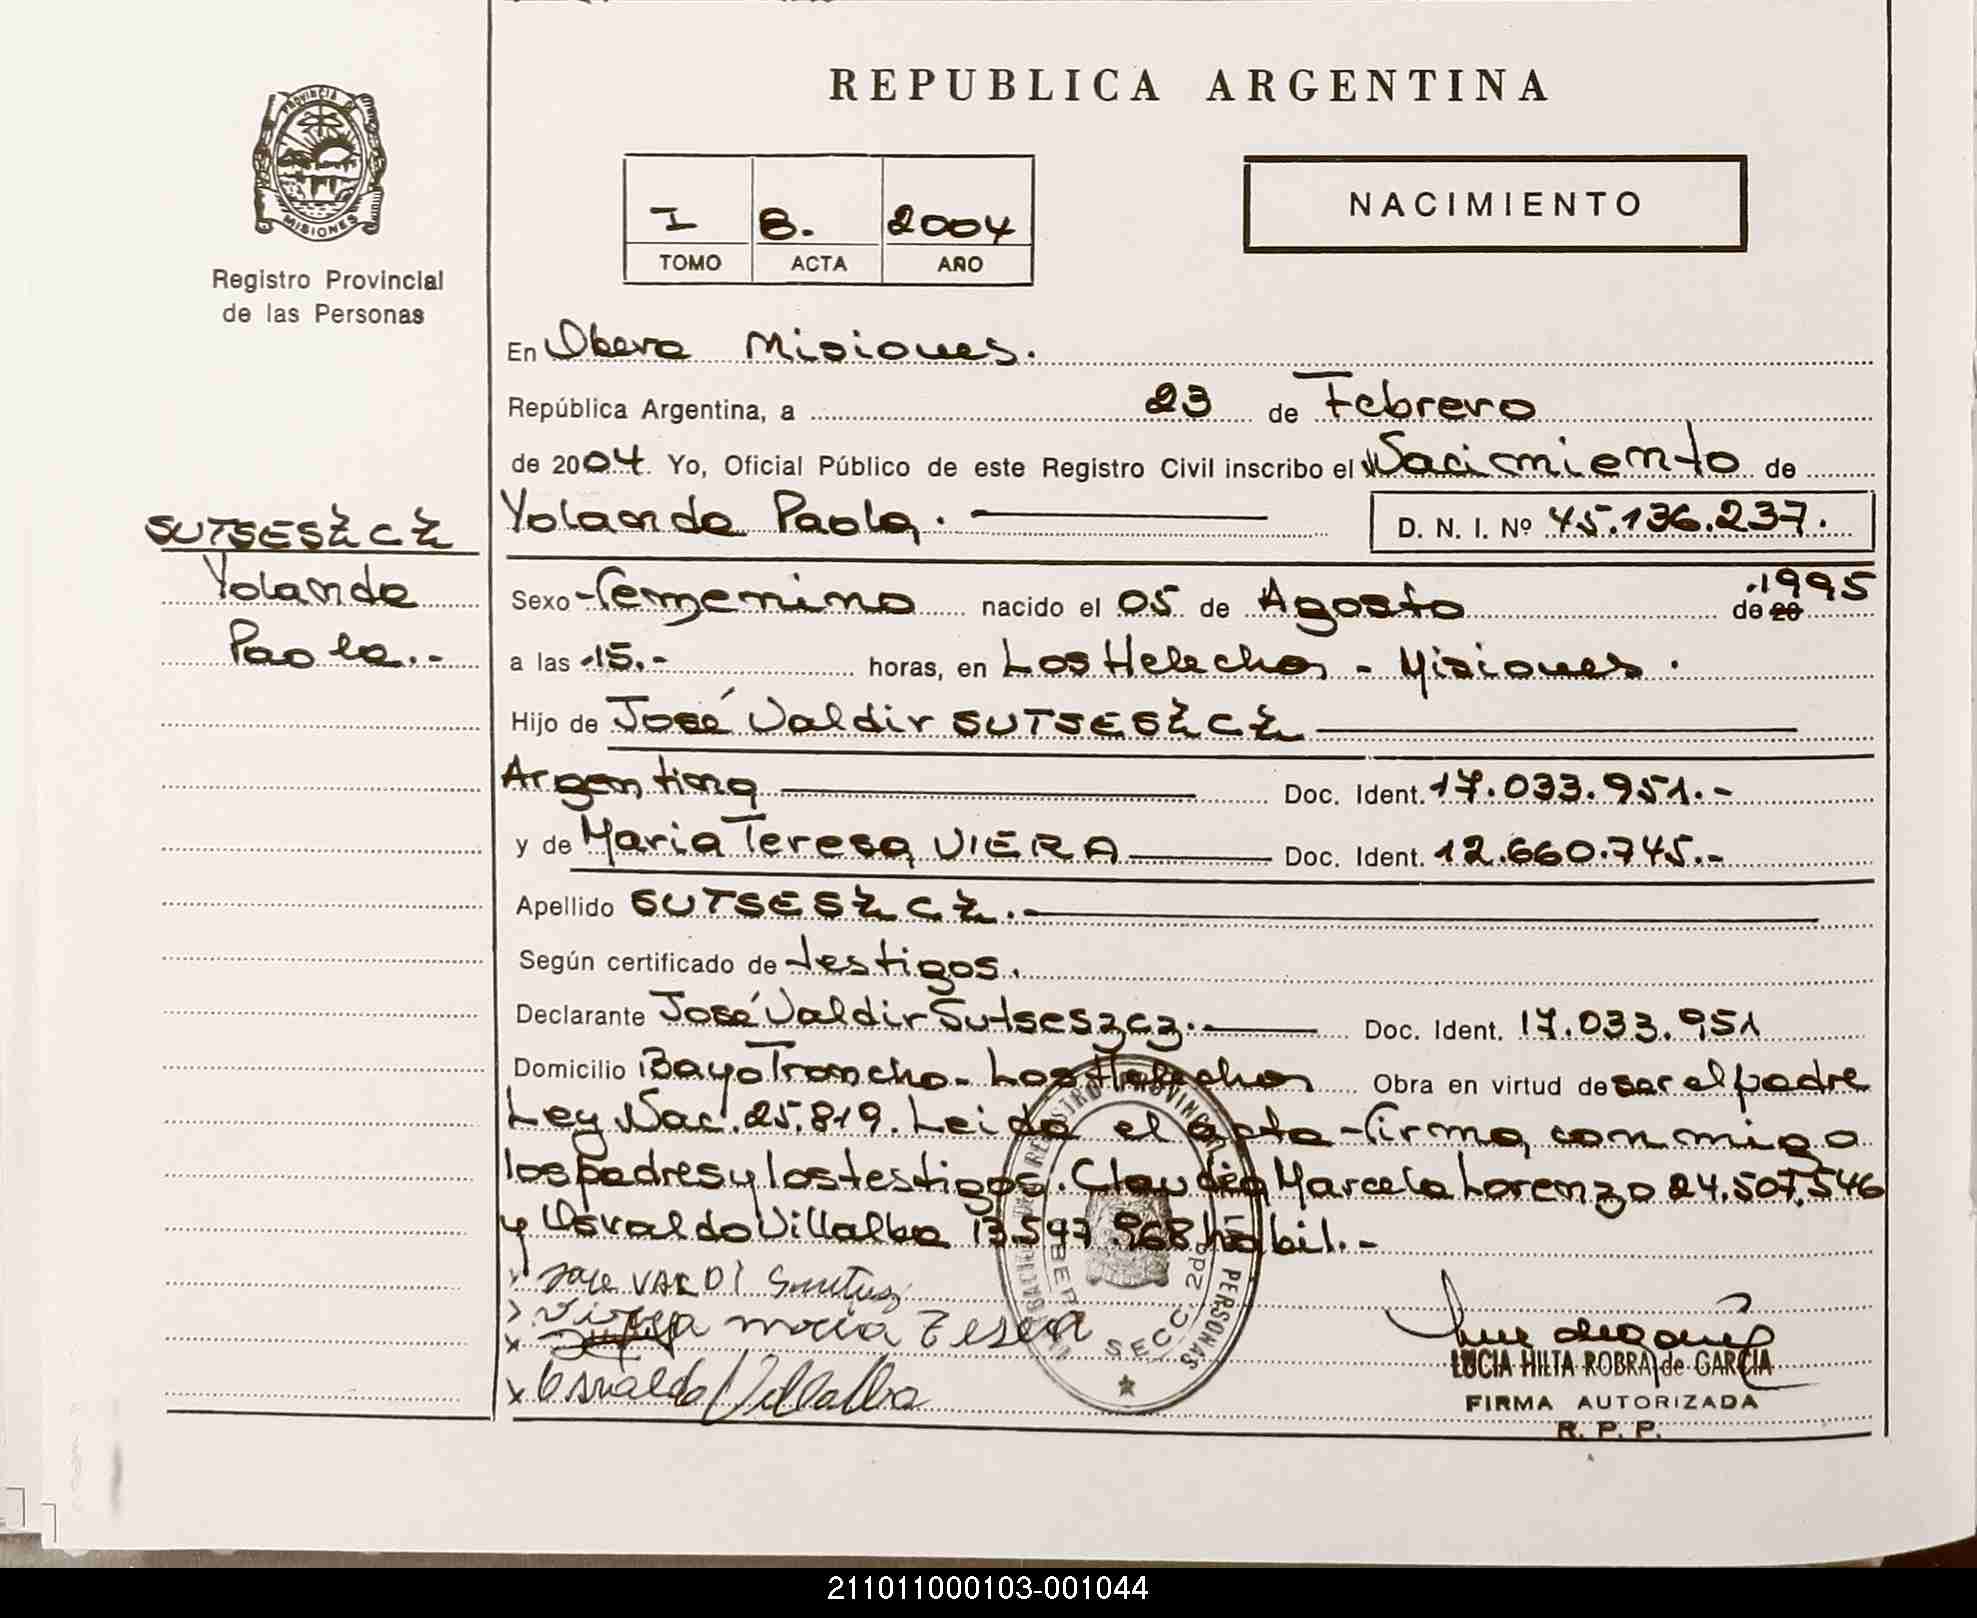 REPUBLICA ARGENTINA
PROVINCIA DE
MISIONES
Registro Provincial
de las Personas
I 8. 2004
TOMO ACTA AÑO
NACIMIENTO
En Obera Misiones.
República Argentina, a 23 de Febrero
de 2004. Yo, Oficial Público de este Registro Civil inscribo el Nacimiento de
SUTSESZCZ
Yolanda
Paola.-
Yolanda Paola. D. N. I. Nº 45.136.237.
Sexo Femenino nacido el 05 de Agosto de 20 1995
a las 15.- horas, en Los Helechos - Misiones.
Hijo de José Valdir SUTSESZCZ
Argentina Doc. Ident. 17.033.951.-
y de Maria Teresa VIERA Doc. Ident. 12.660.745.-
Apellido SUTSESZCZ.-
Según certificado de testigos.
Declarante José Valdir Sutseszcz. Doc. Ident. 17.033.951
Domicilio Bayo Troncho - Los Helechos Obra en virtud de ser el padre
Ley Nac. 25.819. Leida el acta firma, conmigo
los padres y los testigos. Claudia Marcela Lorenzo 24.507.546
y Osvaldo Villalba 13.597.968 habil.-
x Jose VALDI
Viera maria Teresa
x Osvaldo Villalba
SECC. 2da
PERSONAS
LUCIA HILTA ROBRA de GARCIA
FIRMA AUTORIZADA
R. P. P.
211011000103-001044